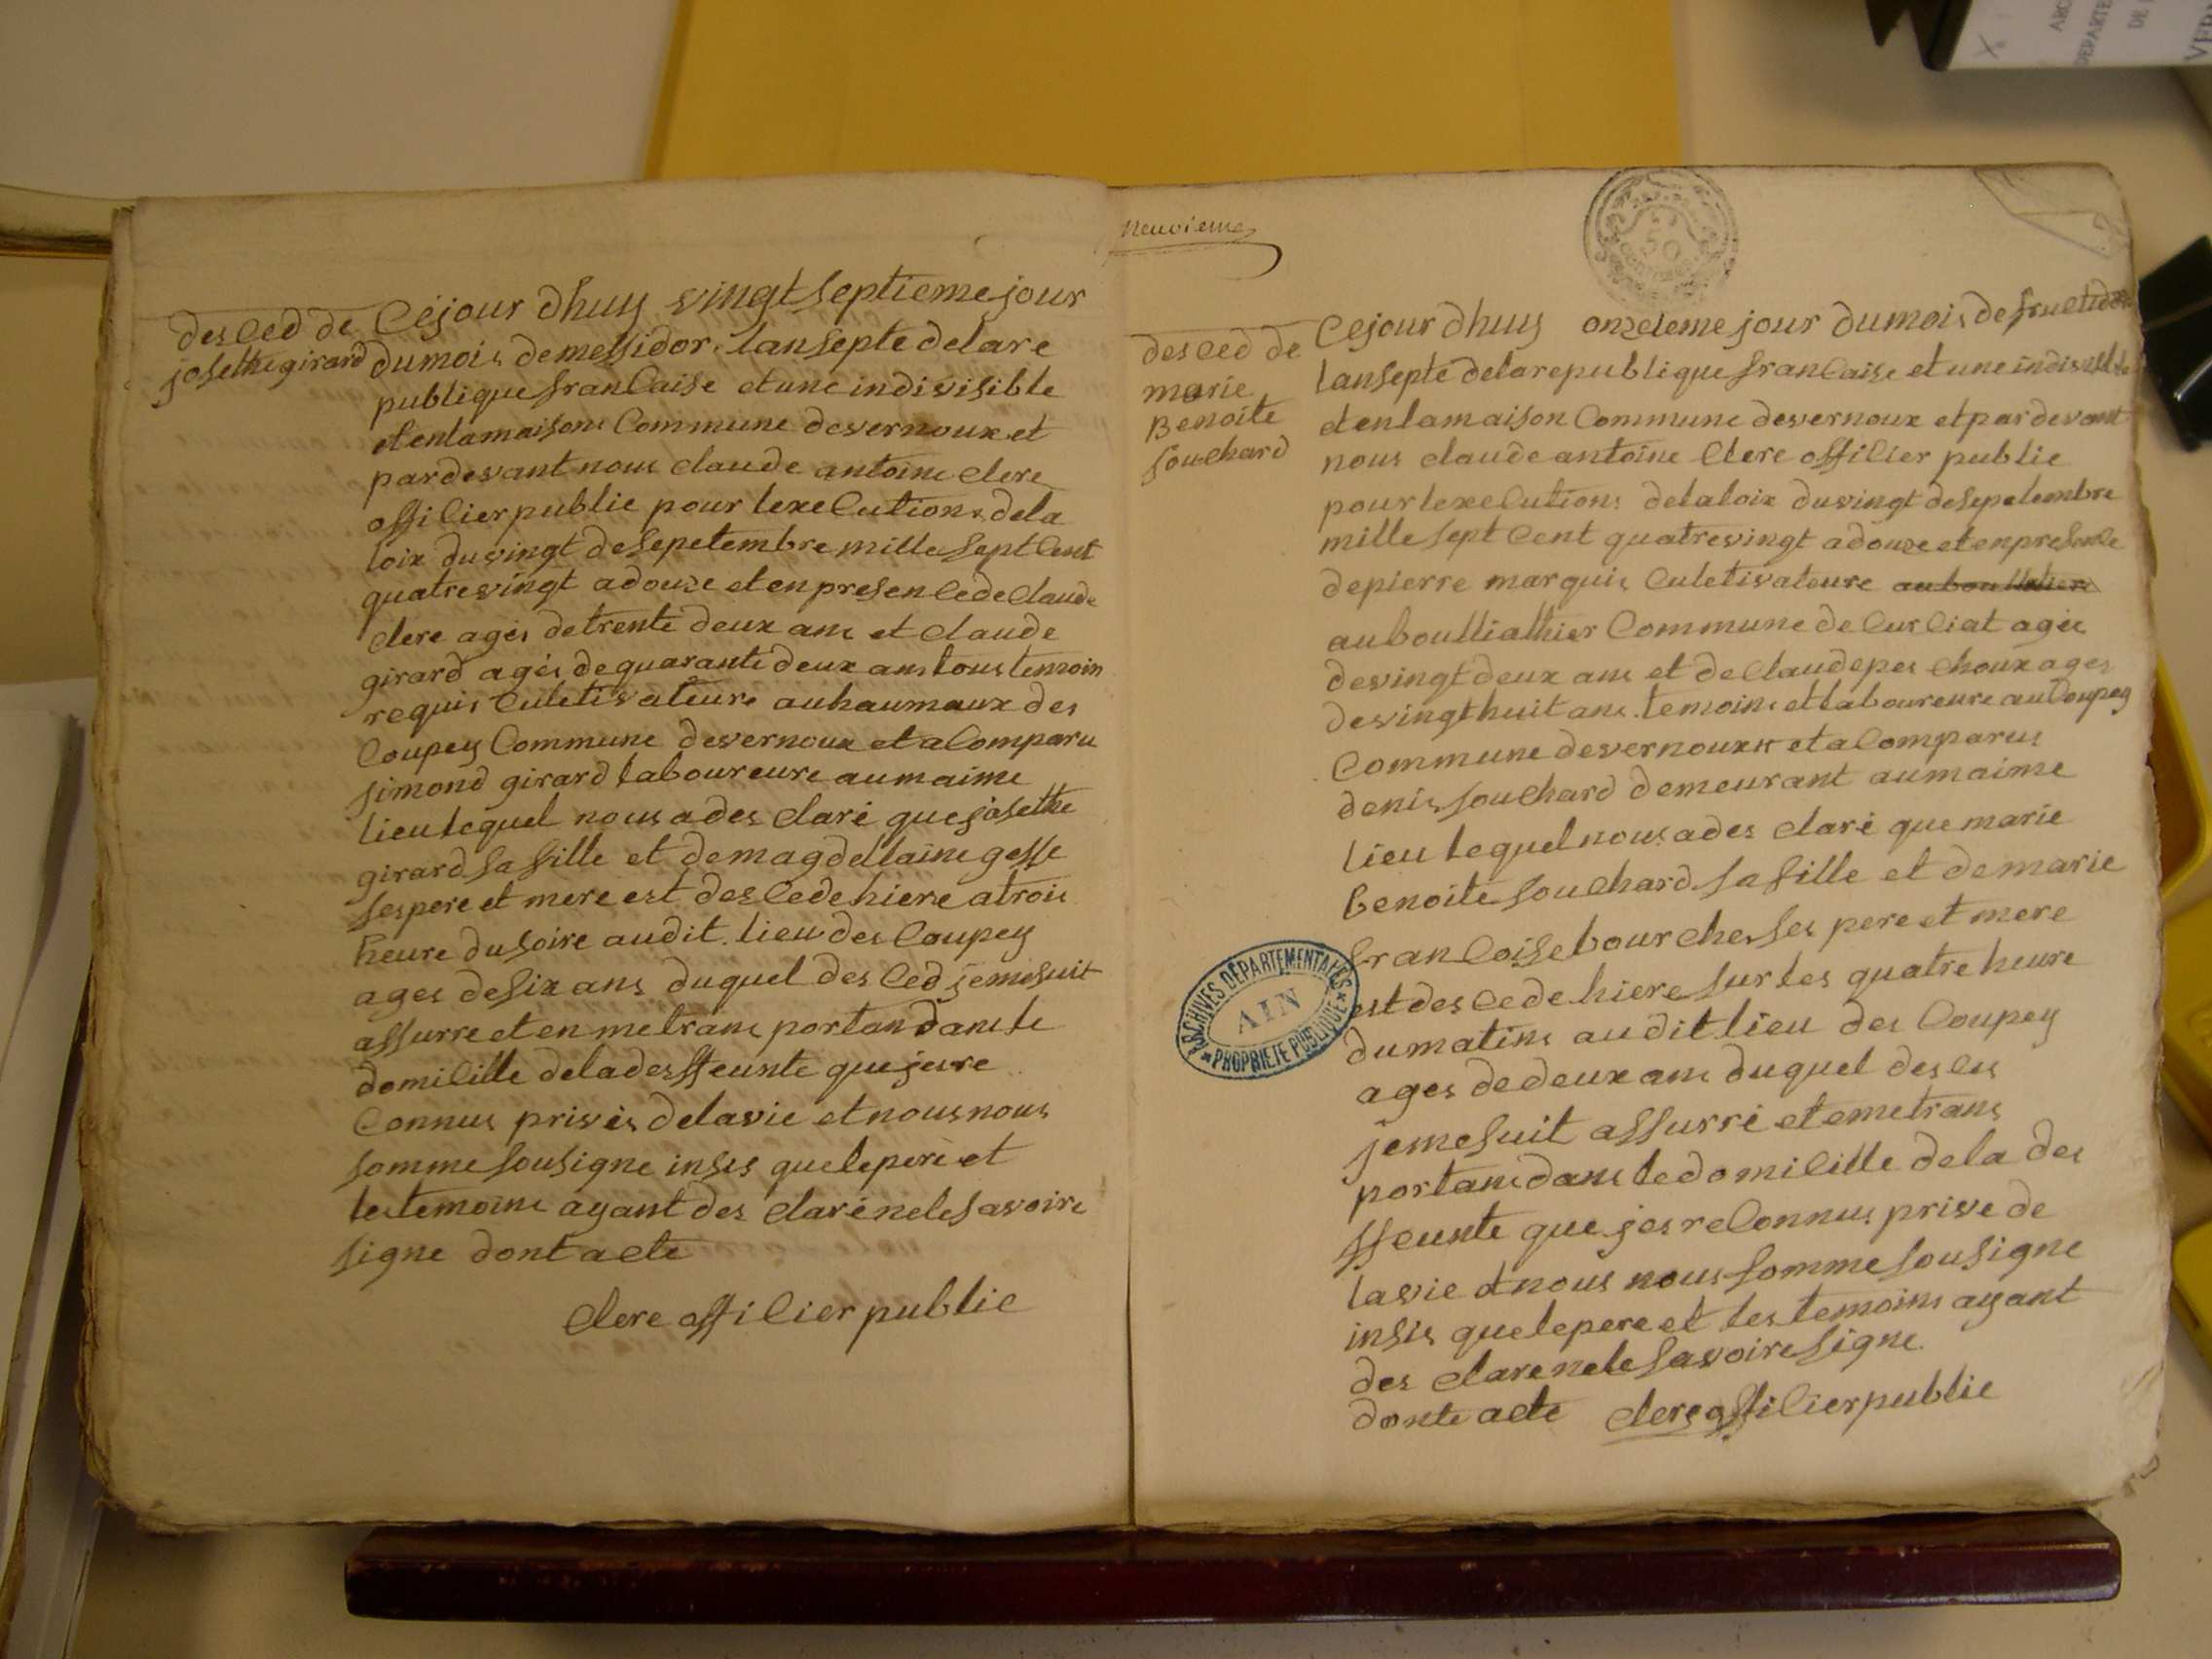 des ced de
josethe girard
Cejour dhuy vingt septieme jour
du mois de messidor lan septe de la re
publique francaise et une indivisible
et en la maisons Commune de vernoux et
par devant nous claude antoine clerc
offilier public pour lexecutions de la
loix du vingt de sepetembre mille sept Cent
quatre vingt a douze et en presence de Claude
clerc agés de trente deux ans et Claude
girard agés de quarante deux ans tous temoin
requis Culetivateurs au haumaux des
Coupey Commune de vernoux et a Comparu
simond girard laboureure au maime
lieu lequel nous a des claré que josethe
girard sa fille et de magdellaine gesse
ses pere et mere est des cede hiere a trois
heure du soire au dit lieu des Coupey
ages de six ans du quel des ced je me suit
assurre et en me trans portan dans le
domicille de la des ffeunte que je sre
Connus privés de la vie et nous nous
somme sousigne insis que le pere et
les temoins ayant des claré ne le savoire
signe dont acte
Clerc offilier public
neuvieme
50
CENTIMES
des ced de
marie
Benoite
souchard
Cejour dhuy onzeleme jour du mois de fructidor
lan septe de la republique francaise et une indivisible
et en la maison Commune de vernoux et par devant
nous claude antoine Clerc offilier public
pour lexecutions de la loix du vingt de sepetembre
mille sept Cent quatre vingt a douze et en presence
de pierre marquis Culetivateure
au boulliathier Commune de Curciat agés
de vingt deux ans et de Claude per choux ages
de vingt huit ans temoins et laboureure au Coupey
Commune de vernoux et a Comparus
denis souchard demeurant au maime
lieu lequel nous a des claré que marie
benoite souchard sa fille et de marie
francoise bourches ses pere et mere
est des cede hiere sur les quatre heure
du matins au dit lieu des Coupey
ages de deux ans du quel des ces
je me suit assurré et eme trans
portans dans le domicille de la des
ffeunte que jes reconnus prive de
la vie et nous nous somme sousigne
insis que le pere et les temoins ayant
des clare ne le savoire signe
donte acte clerc offilier public
ARCHIVES DÉPARTEMENTALES
AIN
PROPRIÉTÉ PUBLIQUE